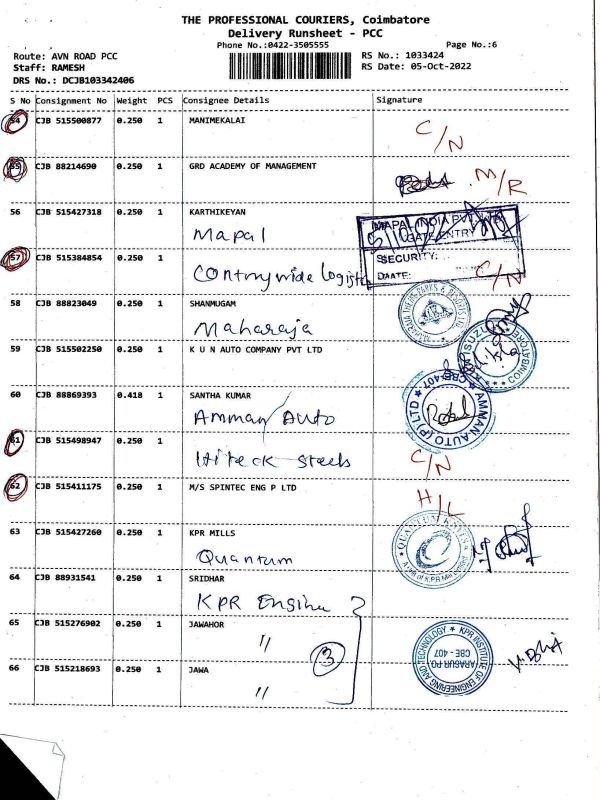 THE PROFESSIONAL COURIERS, Coimbatore
Delivery Runsheet - PCC
Phone No.:0422-3505555
Page No.:6
Route: AVN ROAD PCC
RS No.: 1033424
Staff: RAMESH
RS Date: 05-Oct-2022
DRS No.: DCJB103342406
S No Consignment No Weight PCS Consignee Details Signature
54 CJB 515500877 0.250 1 MANIMEKALAI
C/N
55 CJB 88214690 0.250 1 GRD ACADEMY OF MANAGEMENT
M/R
56 CJB 515427318 0.250 1 KARTHIKEYAN
Mapal
MAPAL INDIA PVT LTD
GATE ENTRY
SECURITY:
DAATE:
57 CJB 515384854 0.250 1
Contrywide Logistics
C/N
58 CJB 88823049 0.250 1 SHANMUGAM
Maharaja
THEME PARKS & RESORTS
59 CJB 515502250 0.250 1 K U N AUTO COMPANY PVT LTD
ISUZU
COIMBATORE
60 CJB 88869393 0.418 1 SANTHA KUMAR
Amman Auto
AMMAN AUTO (P) LTD CBE-407
61 CJB 515498947 0.250 1
Hiteck steels
C/N
62 CJB 515411175 0.250 1 M/S SPINTEC ENG P LTD
H/L
63 CJB 515427260 0.250 1 KPR MILLS
Quantum
QUANTUM KNITS
64 CJB 88931541 0.250 1 SRIDHAR
KPR Engine
65 CJB 515276902 0.250 1 JAWAHOR
"
3
KPR INSTITUTE OF ENGINEERING AND TECHNOLOGY
ARASUR PO.
CBE - 407
66 CJB 515218693 0.250 1 JAWA
"